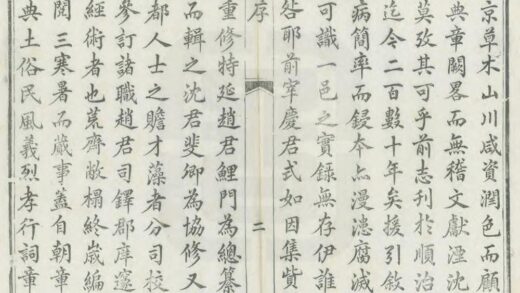 京草木山川咸資潤色而顧
典章闕畧而無稽文獻湮沈
莫攷其可乎前志刋於順治
迄今二百數十年矣援引敘
病簡率而鋟本亦漫漶腐滅
可識一邑之實錄無存伊誰
咎耶前宰慶君式如因集貲
序
二
重修特延趙君鯉門為總纂
而輯之沈君斐卿為協修又
都人士之贍才藻者分司校
參訂諸職趙君司鐸郡庠邃
經術者也荒齋敝榻終嵗編
閱三寒暑而蕆事蓋自朝章
典土俗民風義烈孝行詞章